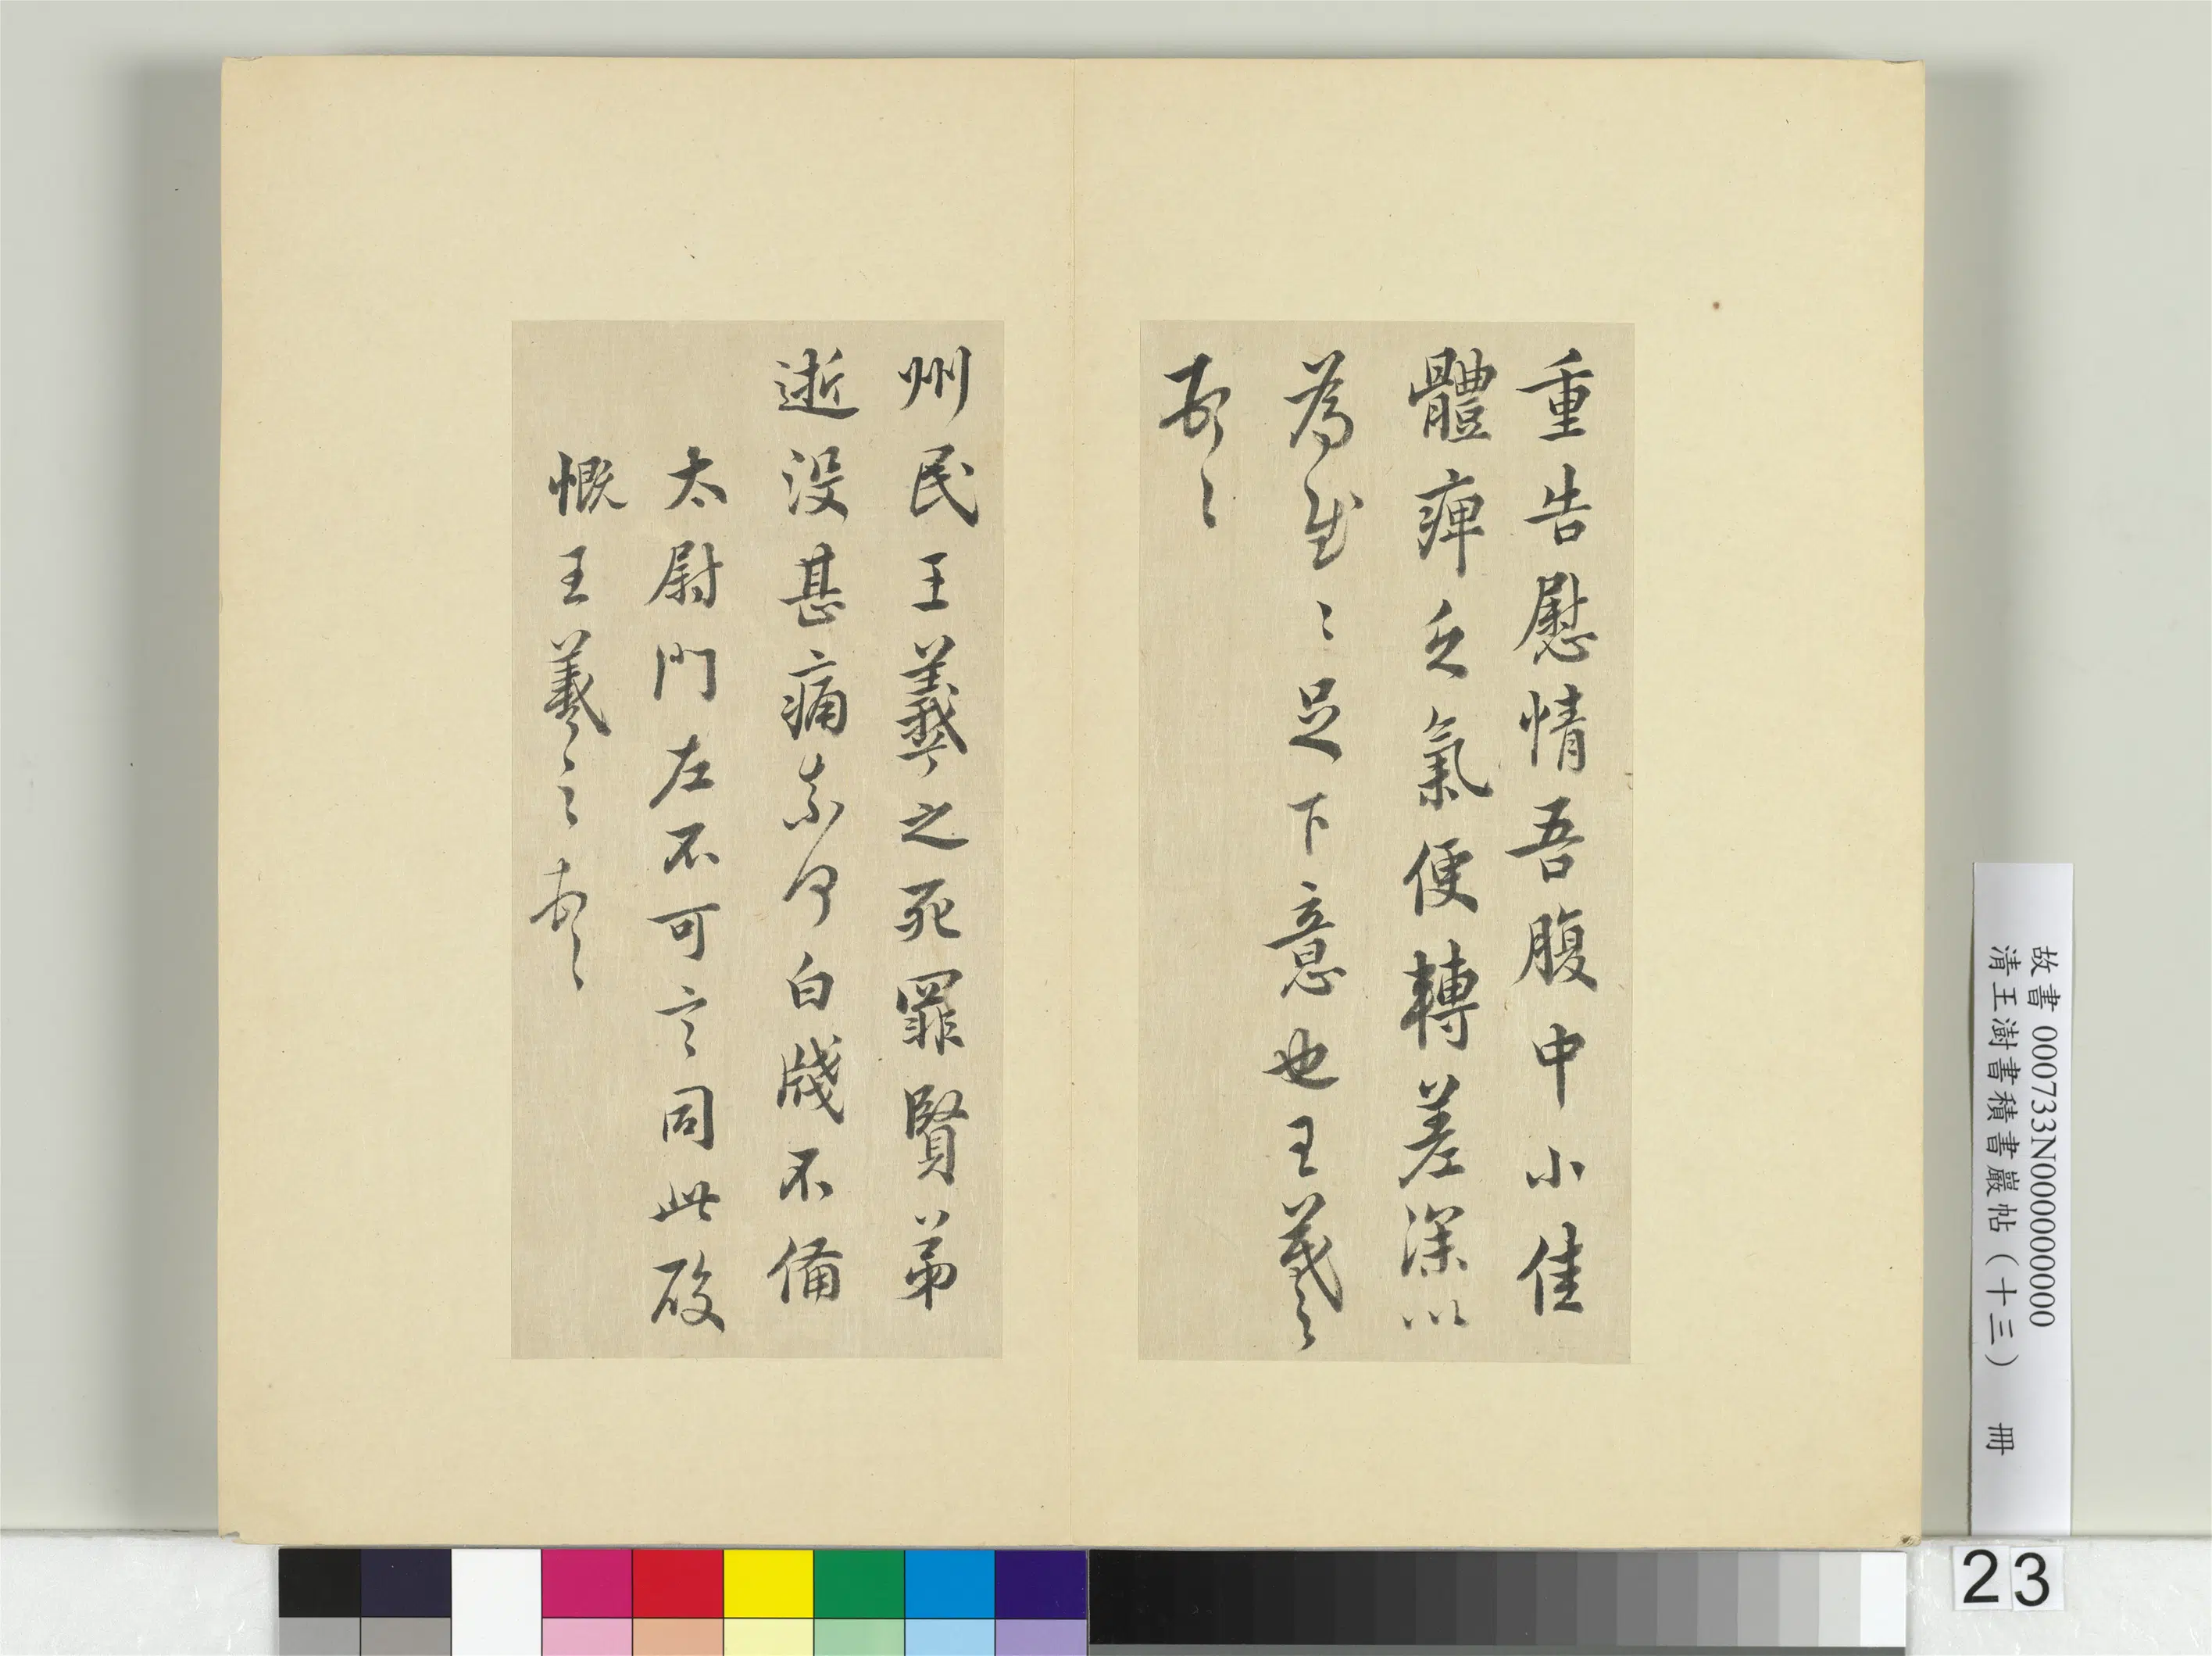 重告慰情吾腹中小佳
體痺乏氣便轉差深以
為慰〻足下意也王羲之
頓〻
州民王羲之死罪賢弟
逝没甚痛奈何白牋不備
太尉門左不可言同此酸
慨王羲之頓〻
故書 000733N000000000
清王澍書積書巖帖(十三) 冊
23